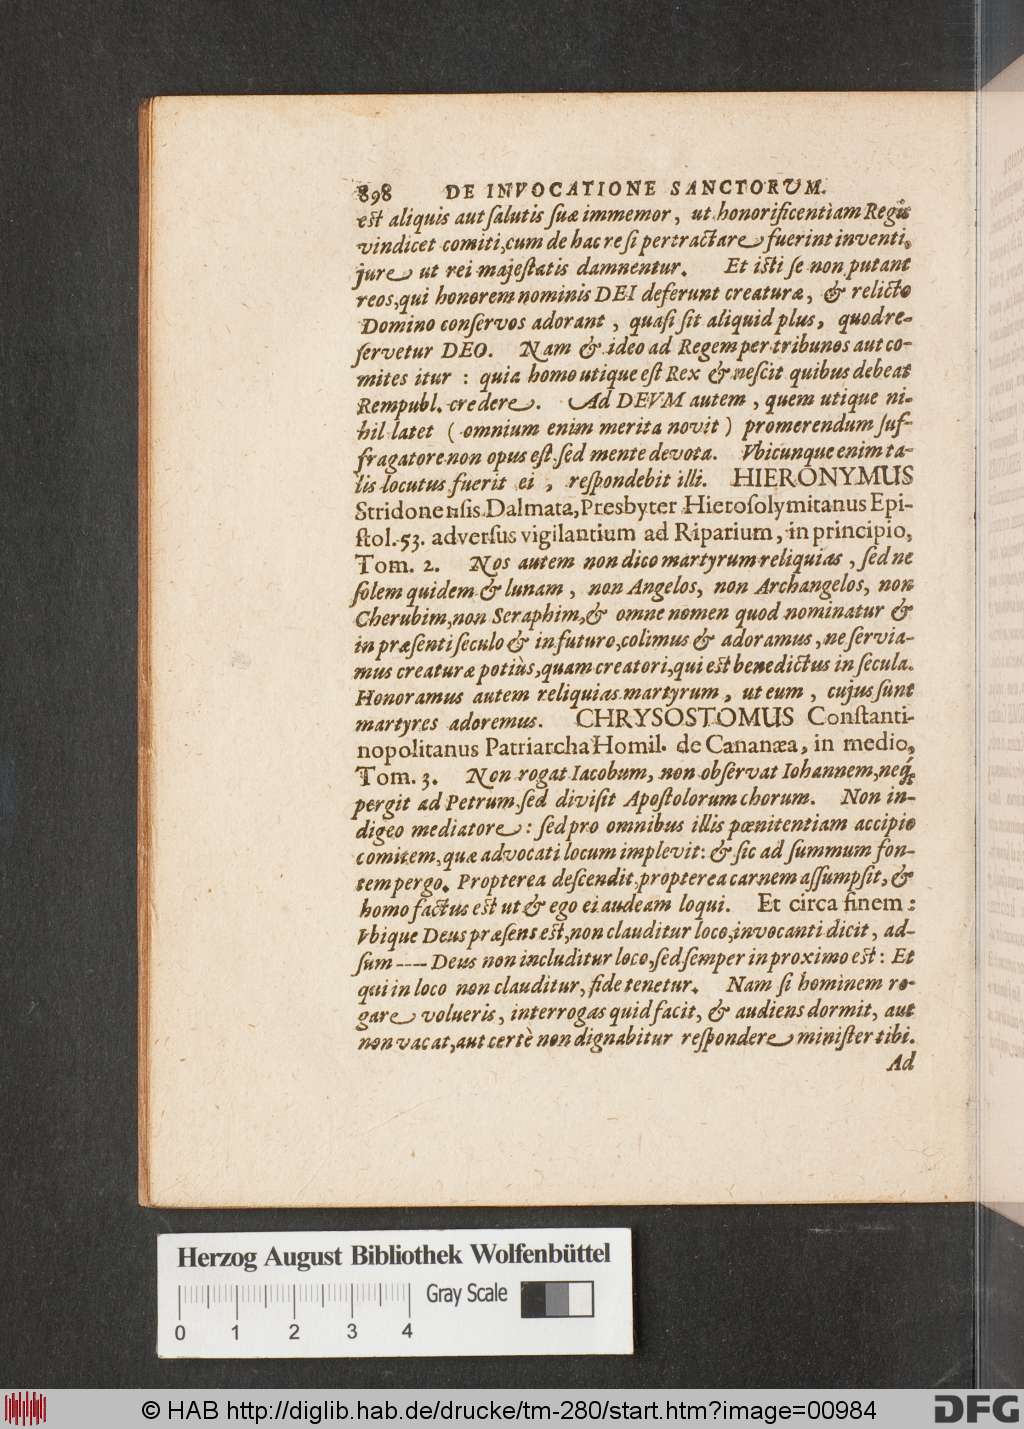 898 DE INVOCATIONE SANCTORUM.
est aliquis aut ſalutis ſuæ immemor, ut honorificentiam Regis
vindicet comiti, cum de hac re ſi pertractare fuerint inventi,
jure ut rei majeſtatis damnentur. Et isti ſe non putant
reos, qui honorem nominis DEI deferunt creaturæ, & relicto
Domino conſervos adorant, quaſi ſit aliquid plus, quod re-
ſervetur DEO. Nam & ideo ad Regem per tribunos aut co-
mites itur: quia homo utique eſt Rex & neſcit quibus debeat
Rempubl. credere. Ad DEVM autem, quem utique ni-
hil latet (omnium enim merita novit) promerendum ſuf-
fragatore non opus eſt, ſed mente devota. Vbicunque enim ta-
lis locutus fuerit ei, reſpondebit illi. HIERONYMUS
Stridonenſis Dalmata, Presbyter Hieroſolymitanus Epi-
ſtol. 53. adverſus vigilantium ad Riparium, in principio,
Tom. 2. Nos autem non dico martyrum reliquias, ſed ne
ſolem quidem & lunam, non Angelos, non Archangelos, non
Cherubim, non Seraphim, & omne nomen quod nominatur &
in præſenti ſeculo & in futuro, colimus & adoramus, ne ſervia-
mus creaturæ potiùs, quam creatori, qui est benedictus in ſecula.
Honoramus autem reliquias martyrum, ut eum, cujus ſunt
martyres adoremus. CHRYSOSTOMUS Conſtanti-
nopolitanus Patriarcha Homil. de Cananæa, in medio,
Tom. 3. Non rogat Iacobum, non obſervat Iohannem, neq;
pergit ad Petrum, ſed diviſit Apoſtolorum chorum. Non in-
digeo mediatore: ſed pro omnibus illis pœnitentiam accipio
comitem, quæ advocati locum implevit: & ſic ad ſummum fon-
tem pergo. Propterea deſcendit, propterea carnem aſſumpſit, &
homo factus est ut & ego ei audeam loqui. Et circa finem:
Vbique Deus præſens est, non clauditur loco, invocanti dicit, ad-
ſum ---- Deus non includitur loco, ſed ſemper in proximo est: Et
qui in loco non clauditur, fide tenetur. Nam ſi hominem ro-
gare volueris, interrogas quid facit, & audiens dormit, aut
non vacat, aut certè non dignabitur reſpondere miniſter tibi.
Ad
Herzog August Bibliothek Wolfenbüttel
Gray Scale
0 1 2 3 4
© HAB http://diglib.hab.de/drucke/tm-280/start.htm?image=00984
DFG